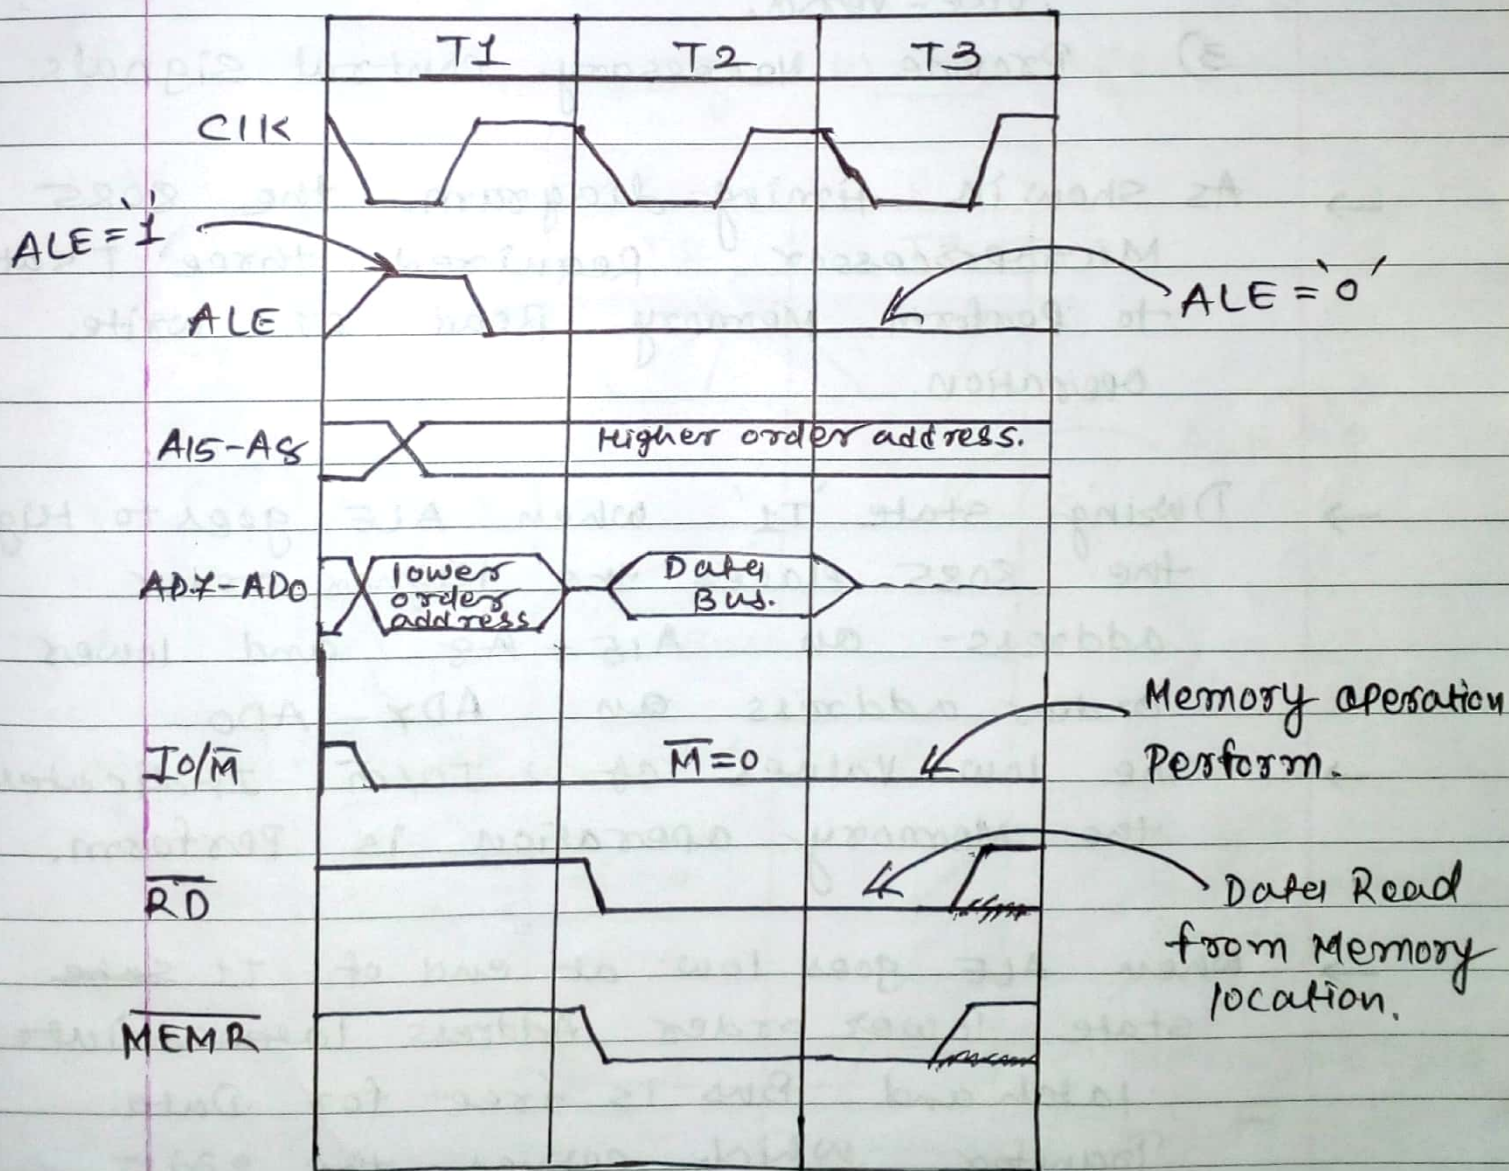 T1 T2 T3
ClK
ALE='1'
ALE
ALE='0'
A15-A8
Higher order address.
AD7-AD0
lower
order
address
Data
Bus.
IO/M̅
M̅=0
Memory operation
Perform.
R̅D̅
Data Read
from Memory
location.
M̅E̅M̅R̅